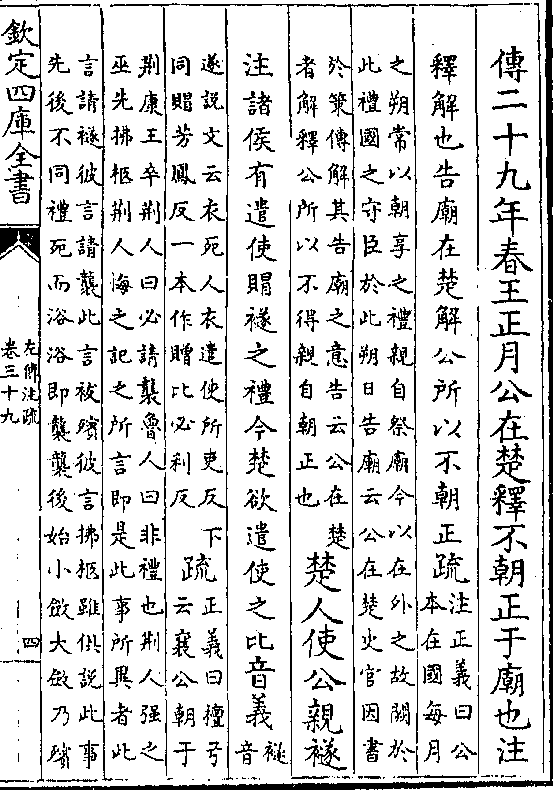 傳二十九年春王正月公在楚釋不朝正于廟也注
釋解也告廟在楚解公所以不朝正疏
注正義曰公
本在國每月
之朔常以朝享之禮親自祭廟今以在外之故闕於
此禮國之守臣於此朔日告廟云公在楚史官因書
於策傳解其告廟之意告云公在楚
者解釋公所以不得親自朝正也
楚人使公親襚
注諸侯有遣使賵襚之禮今楚欲遣使之比音義
襚
音
遂説文云衣死人衣遣使所吏反下
同賵芳鳳反一本作贈比必利反
疏
正義曰檀弓
云襄公朝于
荆康王卒荆人曰必請襲魯人曰非禮也荆人强之
巫先拂柩荆人悔之記之所言即是此事所異者此
言請襚彼言請襲此言被殯彼言拂柩雖俱説此事
先後不同禮死而浴浴即襲襲後始小斂大斂乃殯
欽定四庫全書
左傳注疏
卷三十九
四